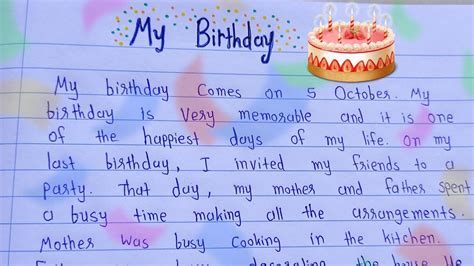 My Birthday
My birthday Comes on 5 October. My
birthday is Very memorable and it is one
of the happiest days of my life. on my
last birthday, I invited my friends to a
party. That day, my mother and father spent
a busy time making all the arrangements.
Mother was busy Cooking in the kitchen.
decorating the house He